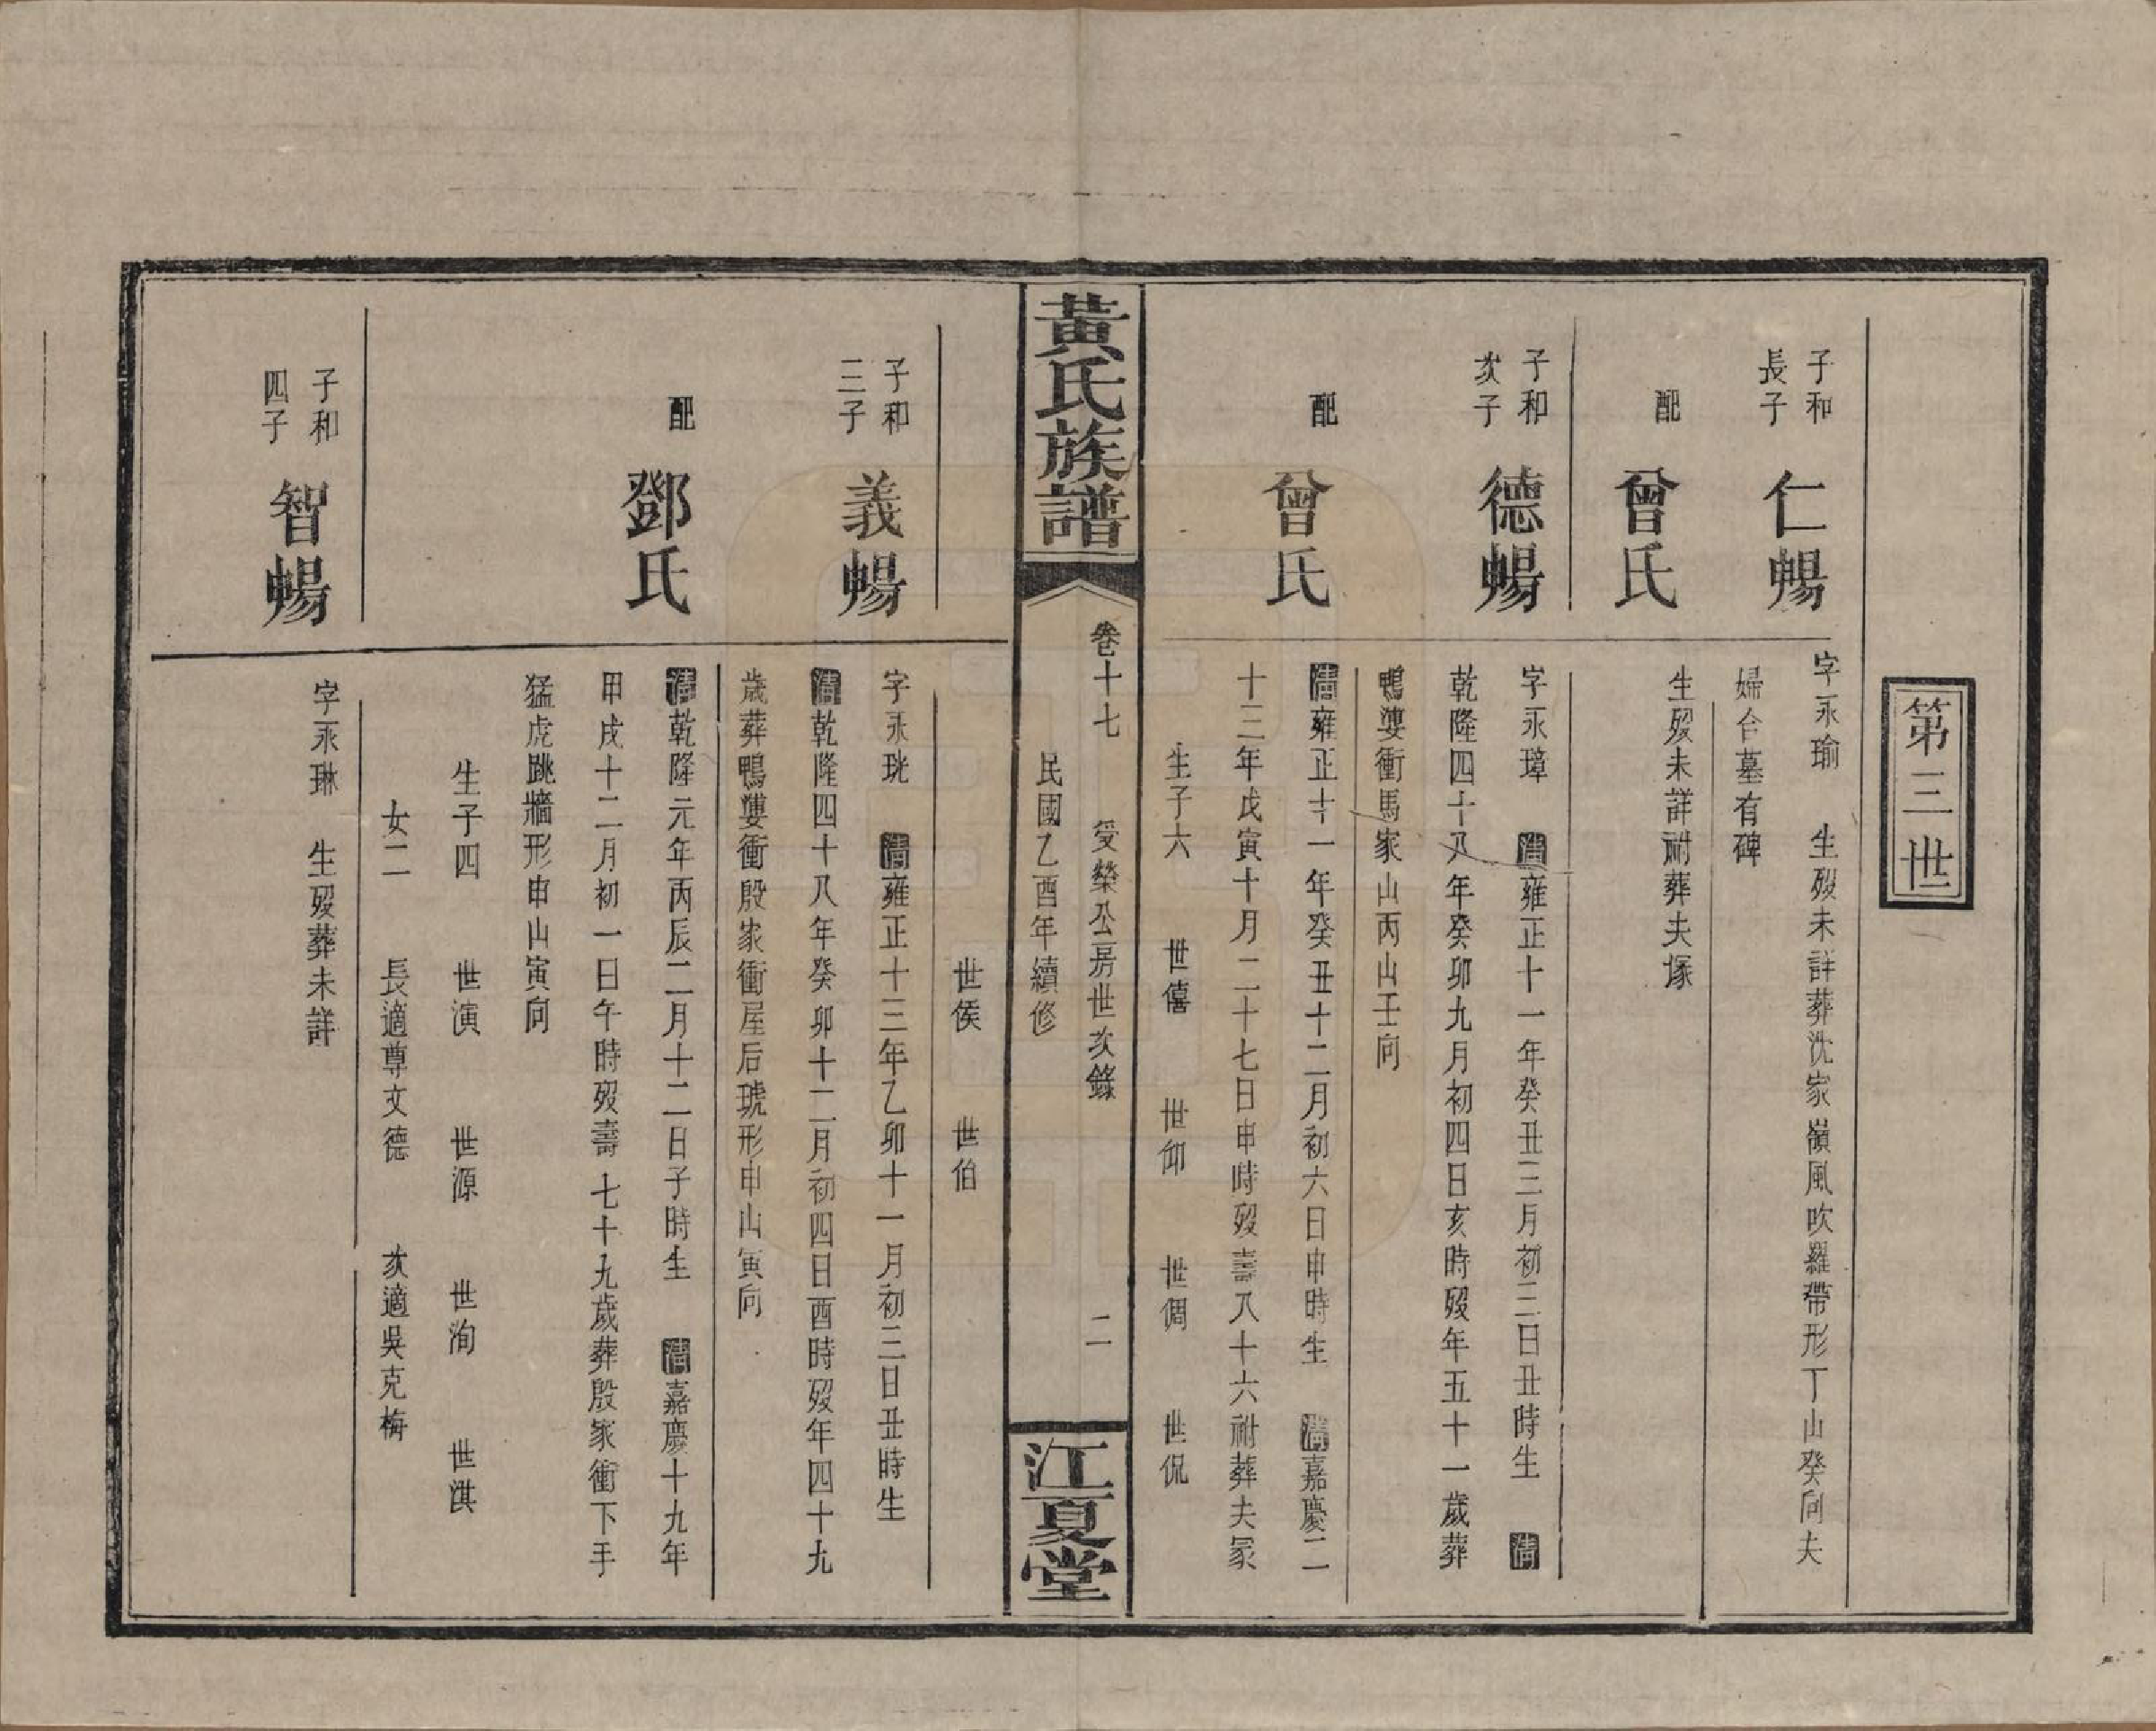 第三世
子和
長子
仁暢
字永瑜　生歿未詳葬沈家嶺風吹羅帶形丁山癸向夫
婦合墓有碑
配
曾氏
生歿未詳祔葬夫塚
子和
次子
德暢
字永璋　清雍正十一年癸丑三月初三日丑時生　清
乾隆四十八年癸卯九月初四日亥時歿年五十一歲葬
鴨婆衝馬家山丙山壬向
配
曾氏
清雍正十一年癸丑十二月初六日申時生　清嘉慶二
十三年戊寅十月二十七日申時歿壽八十六祔葬夫冢
生子六　世僖　世仰　世倜　世侃
黃氏族譜
卷十七　受榮公房世次錄　二
民國乙酉年續修
江夏堂
世侯　世伯
子和
三子
義暢
字永珖　清雍正十三年乙卯十一月初三日丑時生
清乾隆四十八年癸卯十二月初四日酉時歿年四十九
歲葬鴨婆衝殷家衝屋后琥形申山寅向
配
鄧氏
清乾隆元年丙辰二月十二日子時生　清嘉慶十九年
甲戌十二月初一日午時歿壽七十九歲葬殷家衝下手
猛虎跳牆形申山寅向
生子四　世演　世源　世洵　世淇
女二　長適尊文德　次適吳克梅
子和
四子
智暢
字永琳　生歿葬未詳